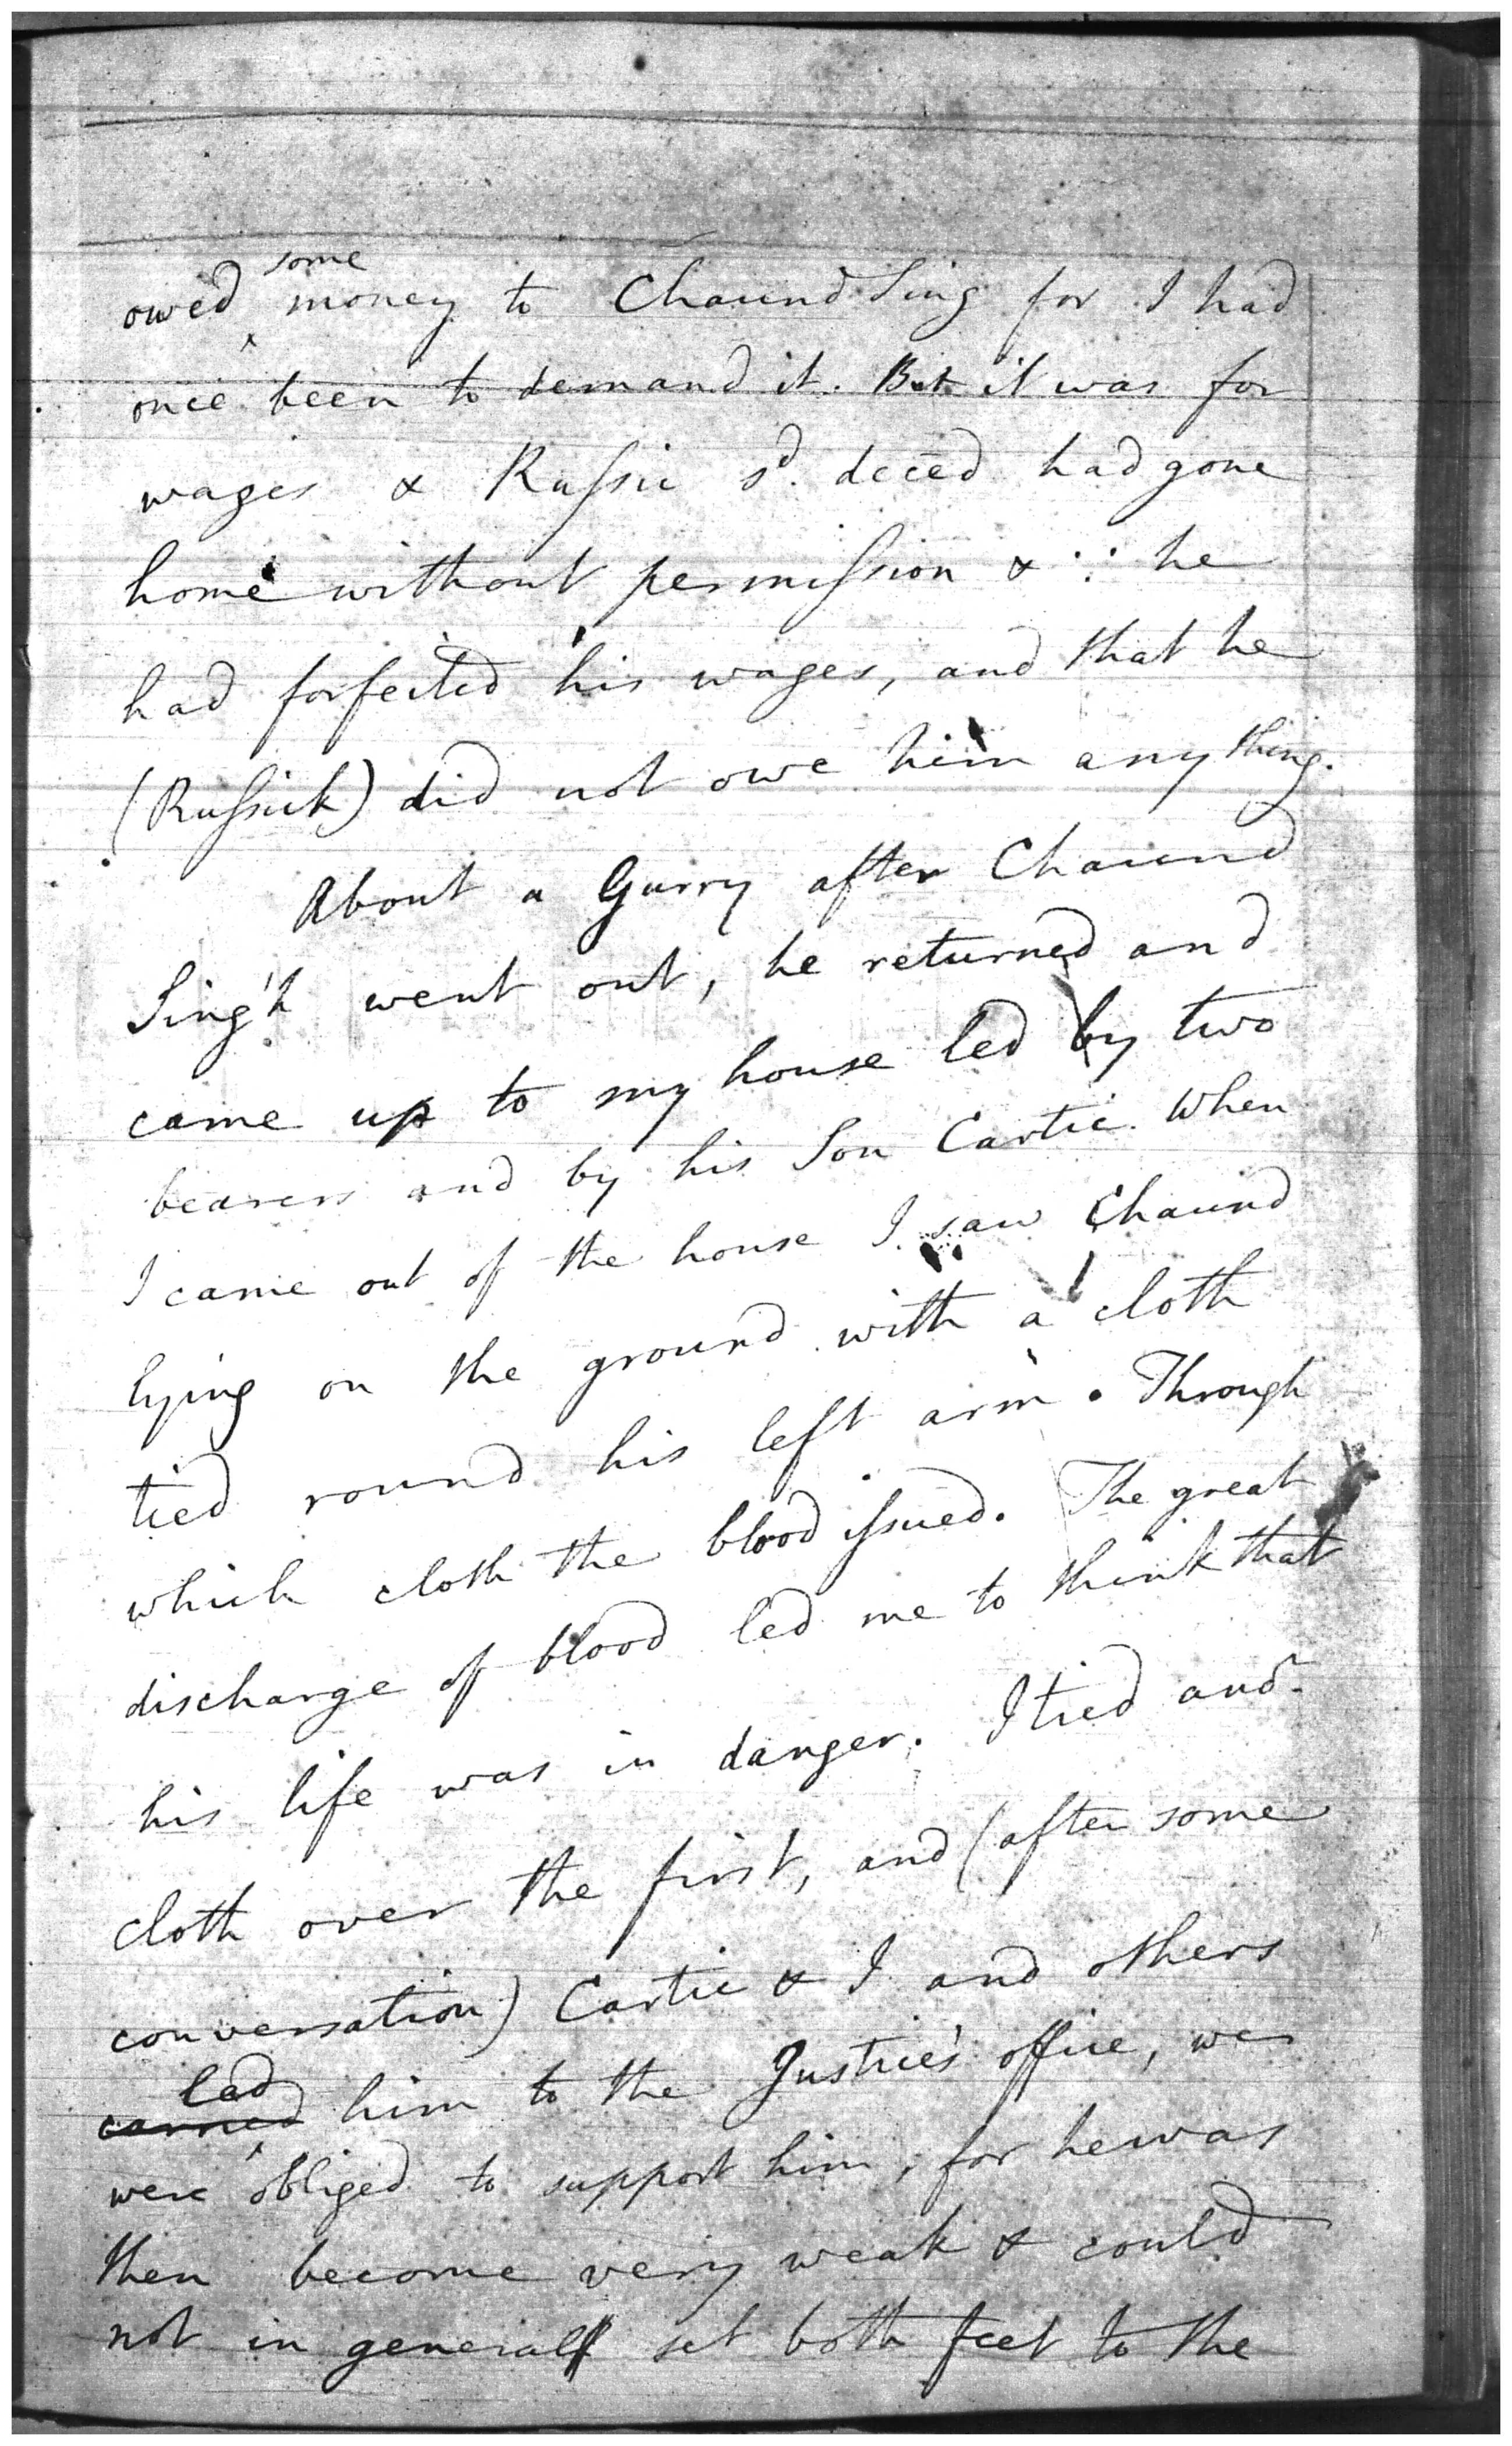 owed some money to Chaund Sing for I had
once been to demand it. But it was for
wages & Russic sd. deced had gone
home without permission & ∵ he
had forfeited his wages, and that he
(Russick) did not owe him any thing.
About a Gurry after Chaund
Sing'h went out, he returned and
came up to my house led by two
bearers and by his Son Cartic. When
I came out of the house I saw Chaund
lying on the ground with a cloth
tied round his left arm. Through
which cloth the blood issued. The great
discharge of blood led me to think that
his life was in danger. I tied anor
cloth over the first, and (after some
conversation) Cartic & I and others
carried led him to the Justice's office, we
were obliged to support him, for he was
then become very weak & could
not in general set both feet to the